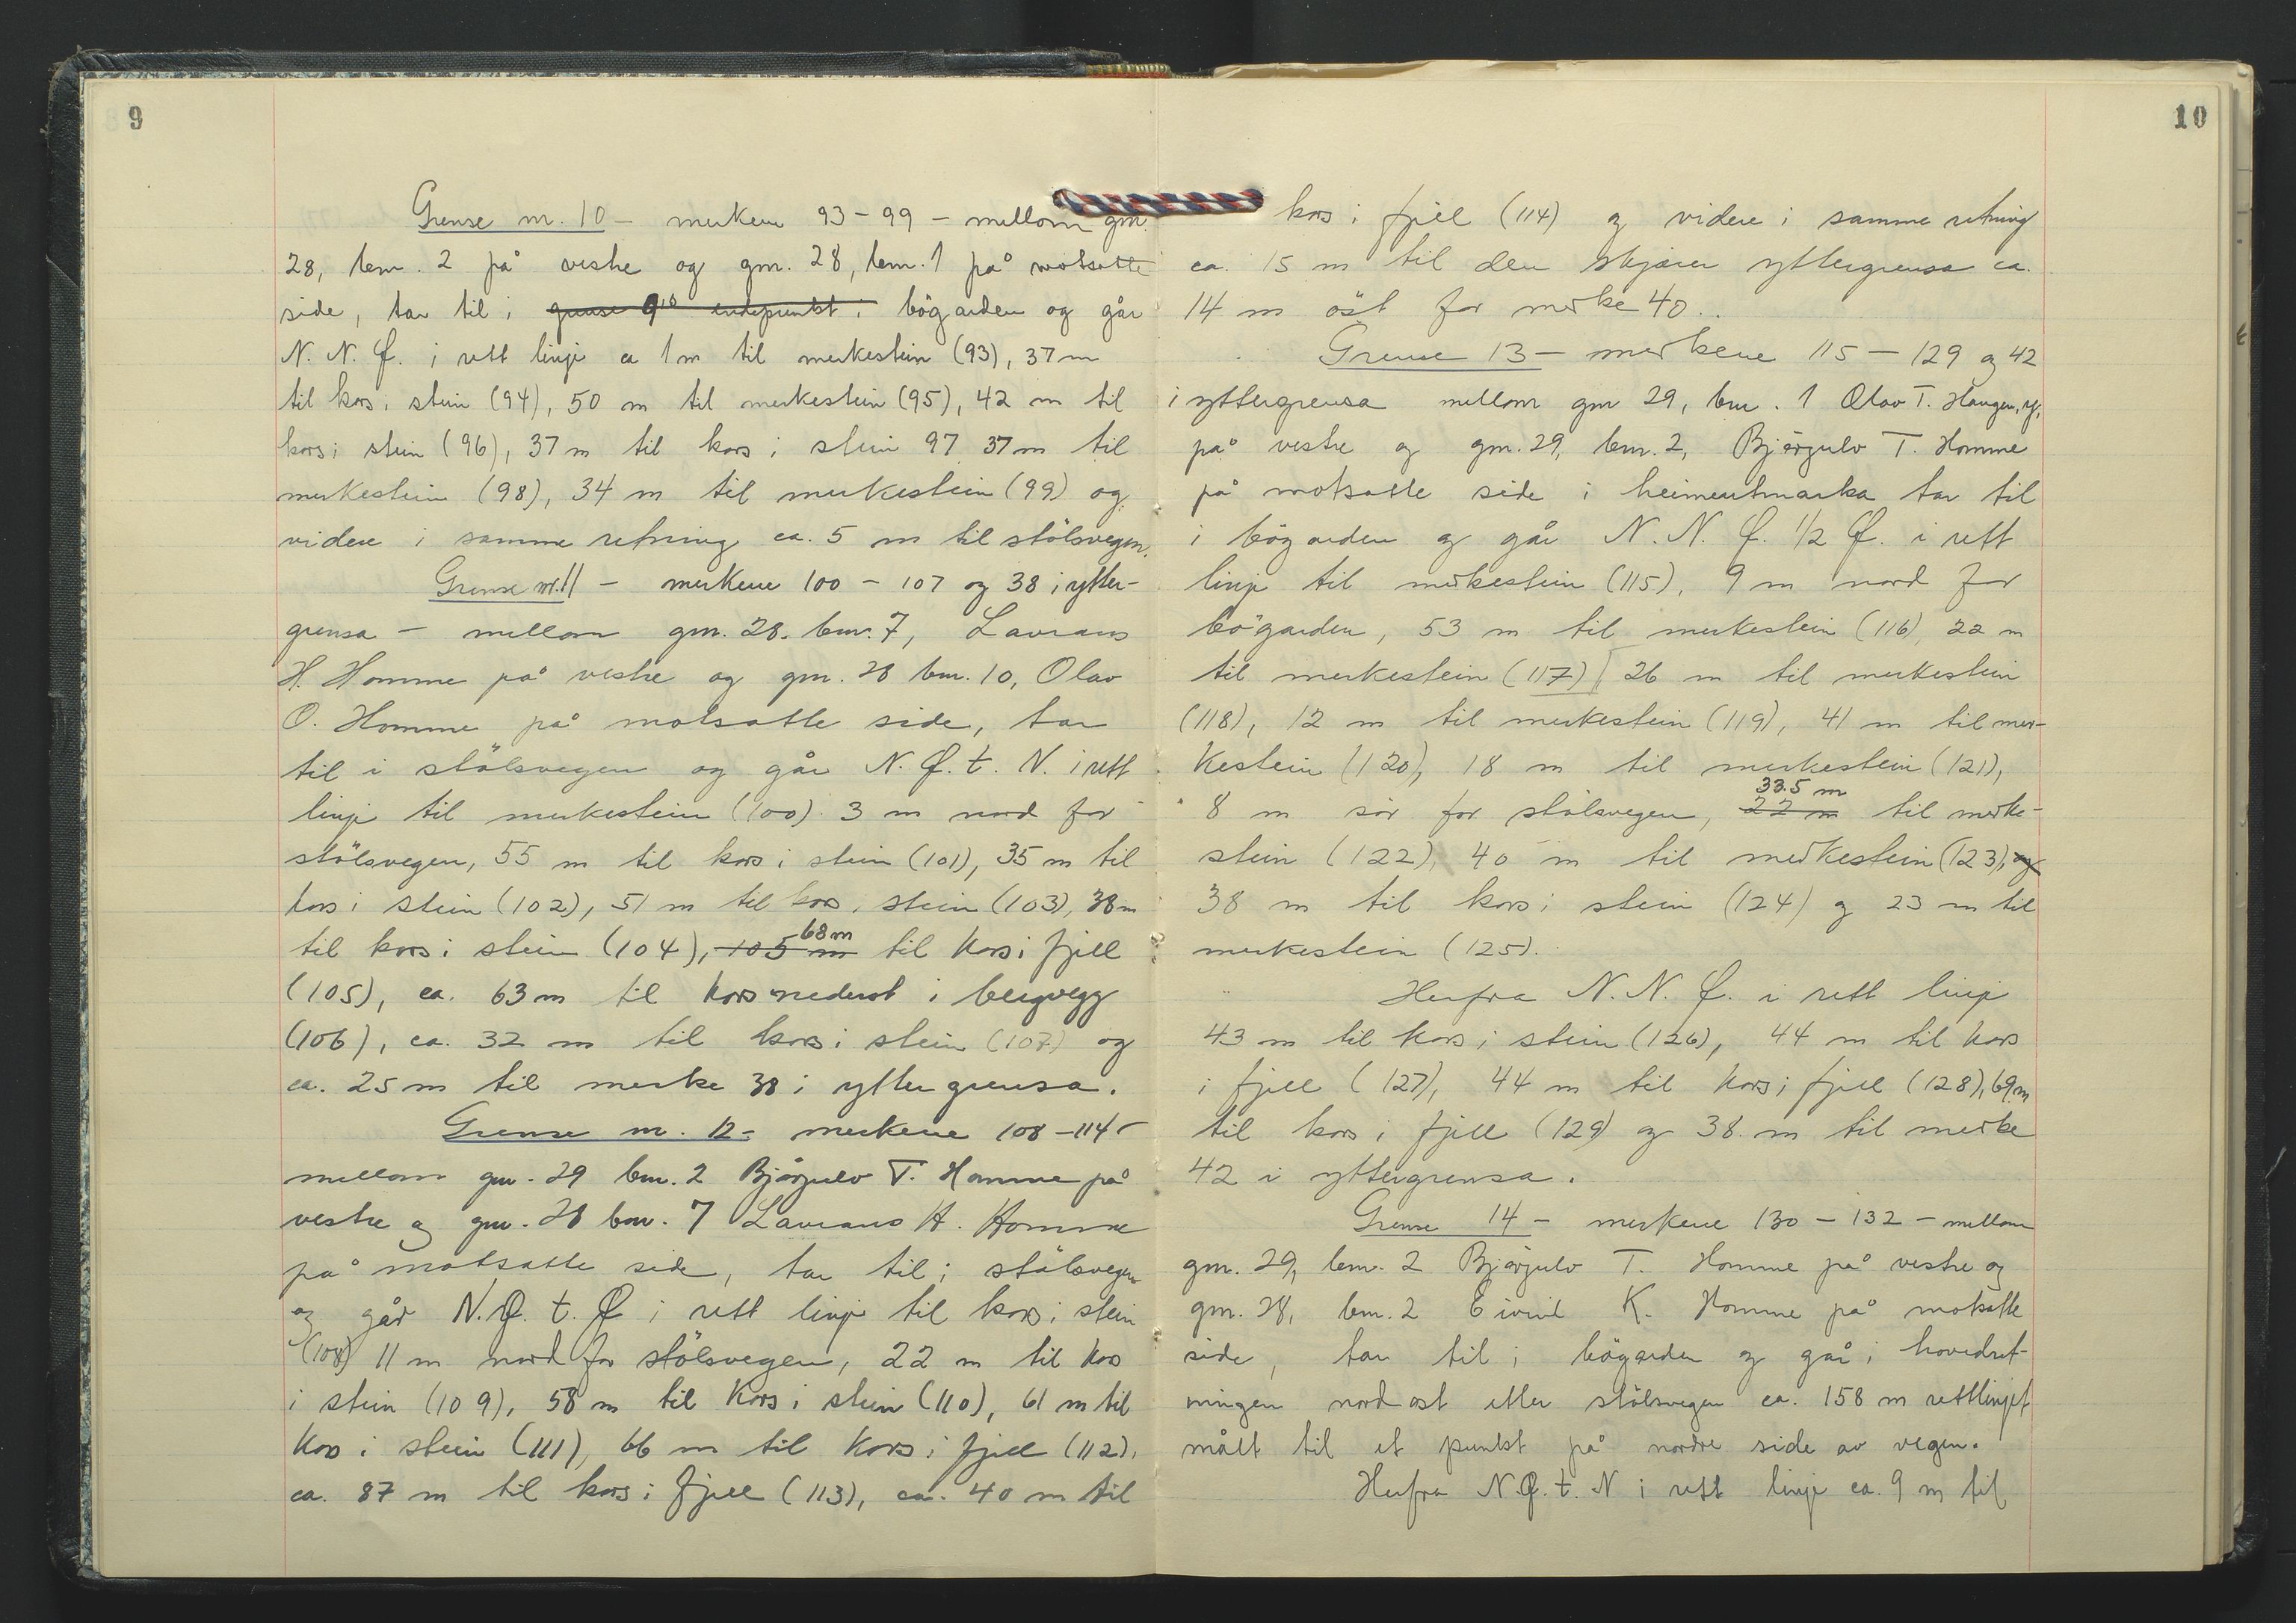 9
Grense nr. 10 - merkene 93-99 - mellom gnr.
28, bnr. 2 på vestre og gnr. 28, bnr. 1 på motsatte
side, tar til i grense 9's endepunkt i bögarden og går
N. N. Ø. i rett linje ca 1 m til merkestein (93), 37 m
til kors i stein (94), 50 m til merkestein (95), 42 m til
kors i stein (96), 37 m til kors i stein 97 37 m til
merkestein (98), 34 m til merkestein (99) og
videre i samme retning ca. 5 m til stölsvegen.
Grense nr. 11 - merkene 100 - 107 og 38 i ytter-
grensa - mellom gnr. 28. bnr. 7, Lavrans
H. Homme på vestre og gnr. 28 bnr. 10, Olav
O. Homme på motsatte side, tar
til i stölsvegen og går N. Ø. t. N. i rett
linje til merkestein (100) 3 m nord for
stölsvegen, 55 m til kors i stein (101), 35 m til
kors i stein (102), 51 m til kors i stein (103), 38 m
68 m
til kors i stein (104), 105 m til kors i fjell
(105), ca. 63 m til kors nederst i bergvegg
(106), ca. 32 m til kors i stein (107) og
ca. 25 m til merke 38 i yttergrensa.
Grense nr. 12 - merkene 108-114 -
mellom gnr. 29 bnr. 2 Björgulv T. Homme på
vestre og gnr. 28 bnr. 7 Lavrans H. Homme
på motsatte side, tar til i stölsvegen
og går N. Ø. t. Ø i rett linje til kors i stein
(108) 11 m nord for stölsvegen, 22 m til kors
i stein (109), 58 m til kors i stein (110), 61 m til
kors i stein (111), 66 m til kors i fjell (112),
ca. 87 m til kors i fjell (113), ca. 40 m til
10
kors i fjell (114) og videre i samme retning
ca. 15 m til den skjærer yttergrensa ca.
14 m öst for merke 40.
Grense 13 - merkene 115 - 129 og 42
i yttergrensa mellom gnr 29, bnr. 1 Olav T. Haugen, y.
på vestre og gnr. 29, bnr. 2, Björgulv T. Homme
på motsatte side i heimeutmarka tar til
i bögarden og går N. N. Ø. 1/2 Ø. i rett
linje til merkestein (115), 9 m nord for
bögarden, 53 m til merkestein (116), 22 m
til merkestein (117) 26 m til merkestein
(118), 12 m til merkestein (119), 41 m til mer-
kestein (120), 18 m til merkestein (121),
33.5 m
8 m sör for stölsvegen, 22 m til merke-
stein (122), 40 m til merkestein (123), og
38 m til kors i stein (124) og 23 m til
merkestein (125).
Herfra N. N. Ø. i rett linje
43 m til kors i stein (126), 44 m til kors
i fjell (127), 44 m til kors i fjell (128), 69 m
til kors i fjell (129) og 38 m til merke
42 i yttergrensa.
Grense 14 - merkene 130 - 132 - mellom
gnr. 29, bnr. 2 Björgulv T. Homme på vestre og
gnr. 28, bnr. 2 Eivind K. Homme på motsatte
side, tar til i bögarden og går i hovedret-
ningen nordost etter stölsvegen ca. 158 m rettlinjet
målt til et punkt på nordre side av vegen.
Herfra N. Ø. t. N i rett linje ca. 9 m til